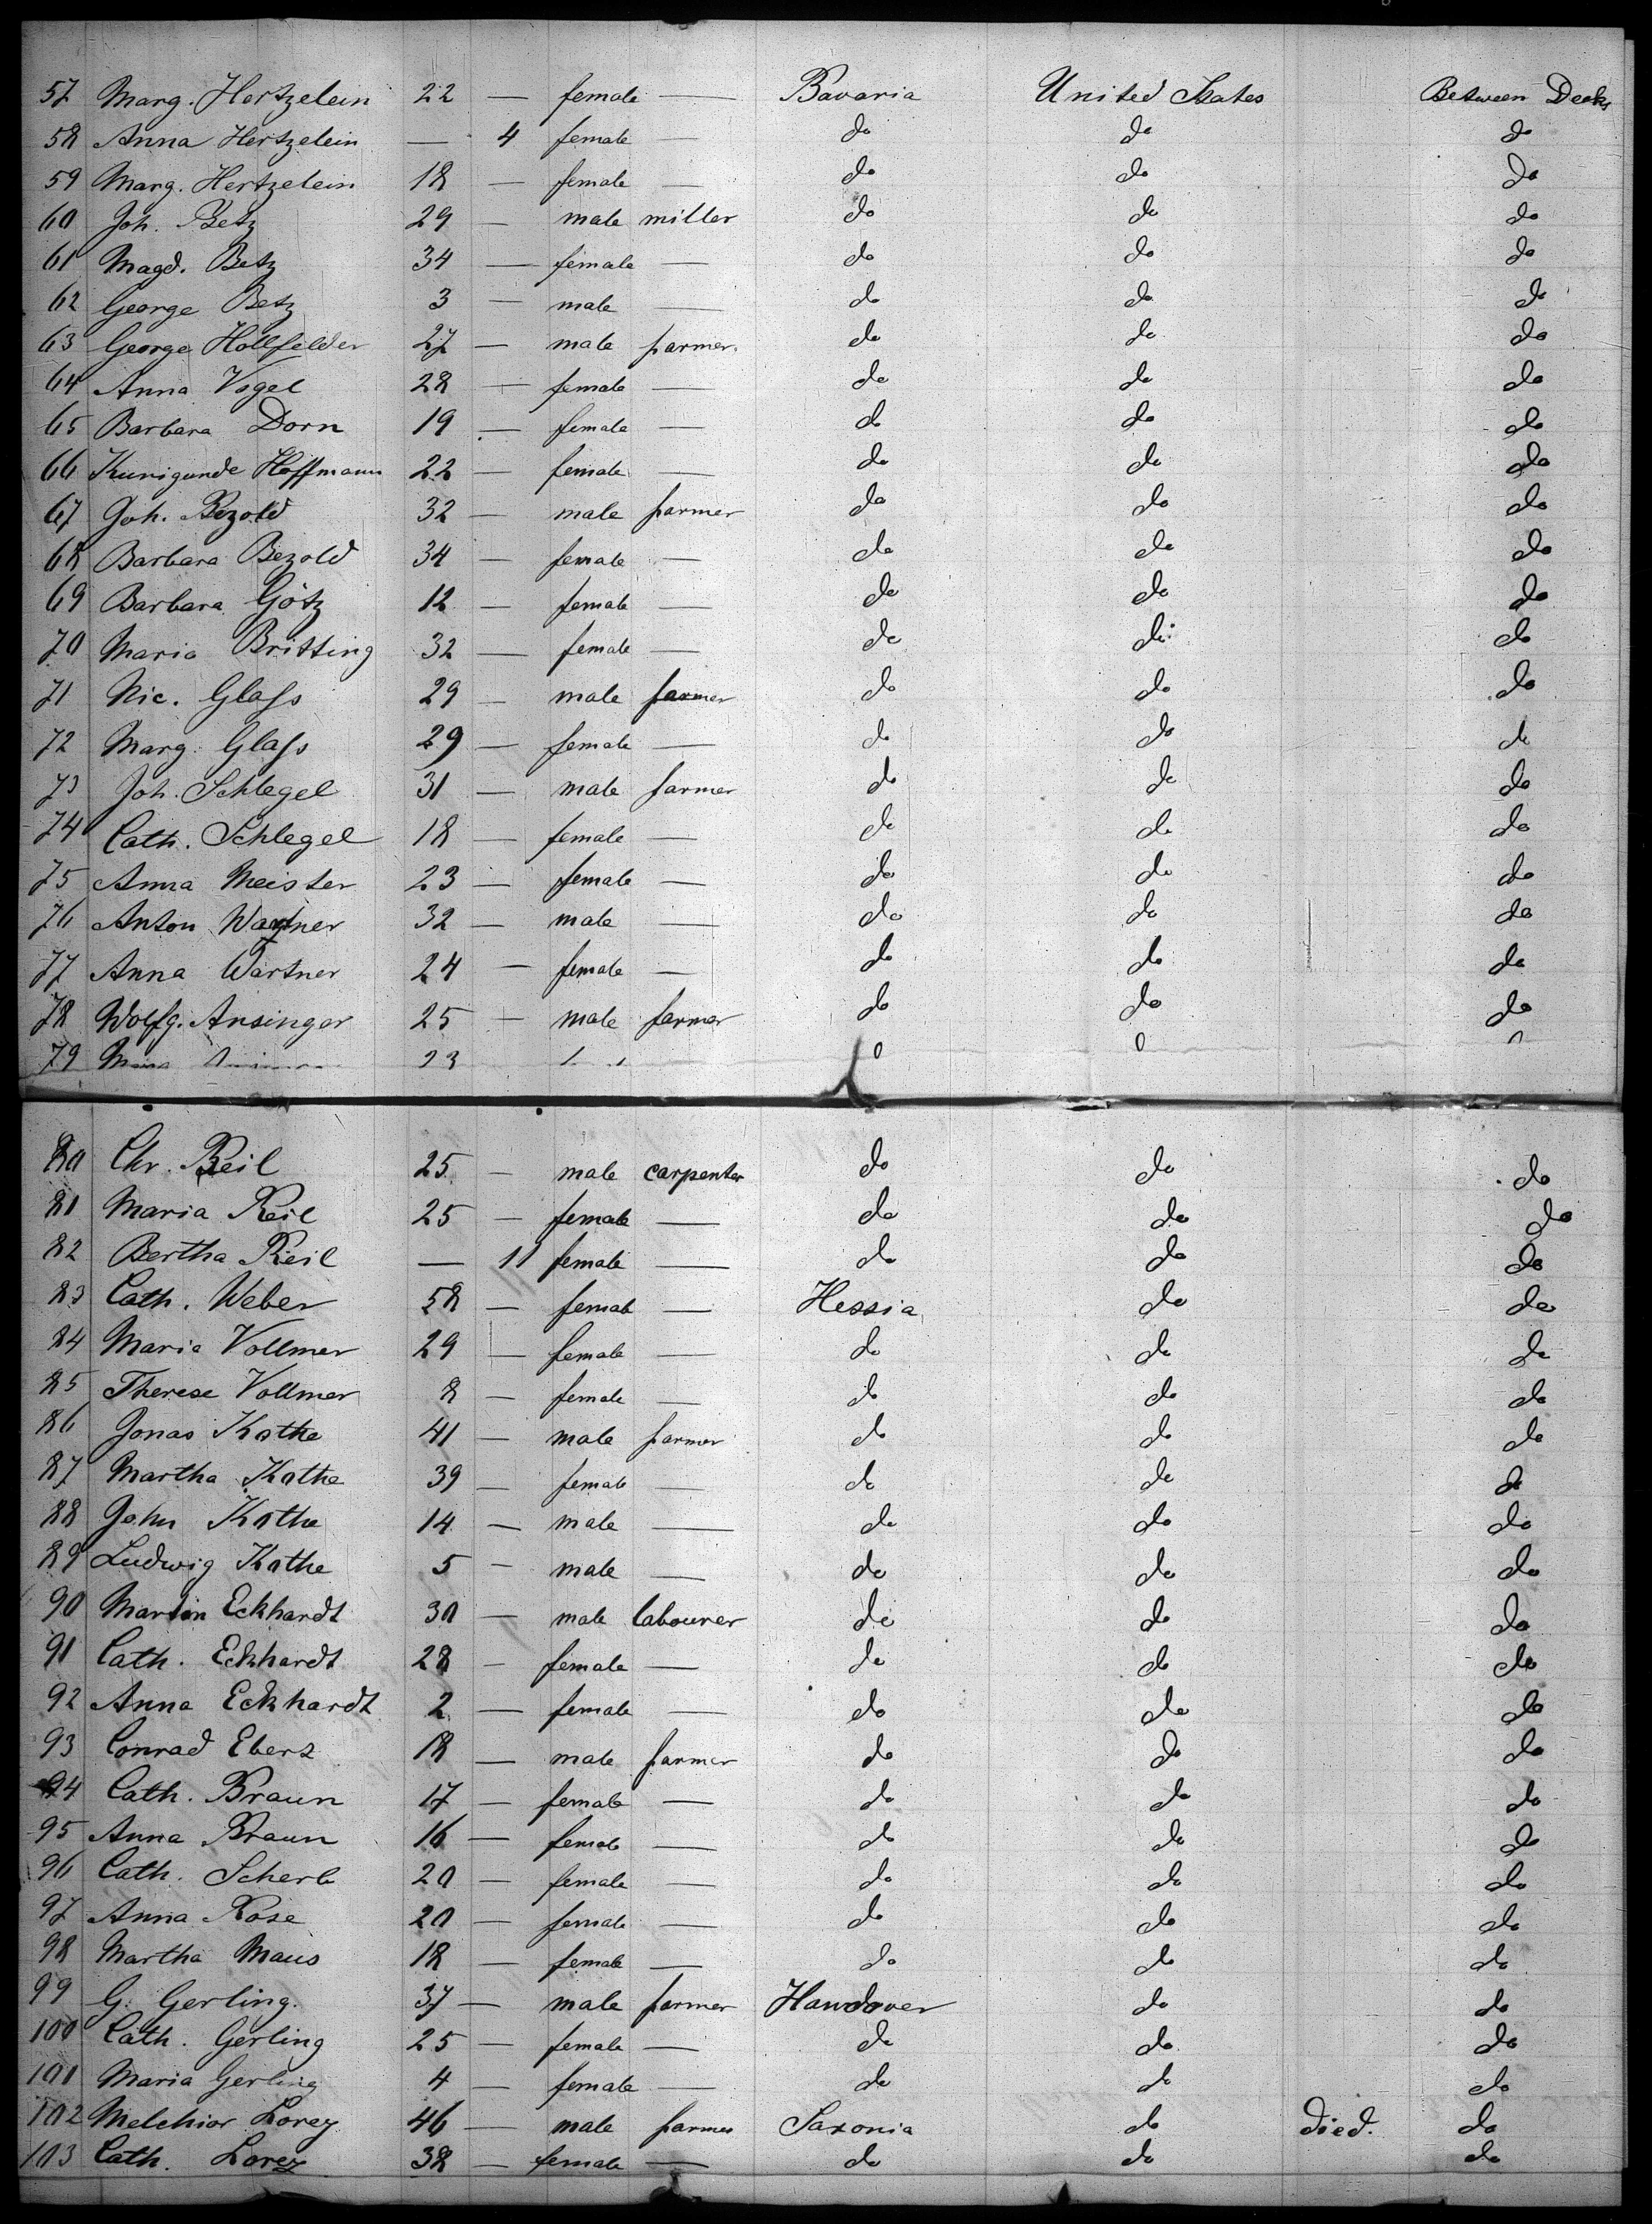 57 Marg. Hertzelein 22 — female — Bavaria United States Between Decks
58 Anna Hertzelein — 4 female — do do do
59 Marg. Hertzelein 18 — female — do do do
60 Joh. Betz 29 — male miller do do do
61 Magd. Betz 34 — female — do do do
62 George Betz 3 — male — do do do
63 George Hollfelder 27 — male farmer do do do
64 Anna Vogel 28 — female — do do do
65 Barbara Dorn 19 — female — do do do
66 Kunigunde Hoffmann 22 — female — do do do
67 Joh. Bezold 32 — male farmer do do do
68 Barbara Bezold 34 — female — do do do
69 Barbara Götz 12 — female — do do do
70 Maria Britting 32 — female — do do do
71 Nic. Glaſs 29 — male farmer do do do
72 Marg. Glaſs 29 — female — do do do
73 Joh. Schlegel 31 — male farmer do do do
74 Cath. Schlegel 18 — female — do do do
75 Anna Meister 23 — female — do do do
76 Anton 32 — male — do do do
77 Anna Wartner 24 — female — do do do
78 Wolfg. Ansinger 25 — male farmer do do do
79 23
80 Chr. Reil 25 — male carpenter do do do
81 Maria Reil 25 — female — do do do
82 Bertha Reil — 11 female — do do do
83 Cath. Weber 58 — female — Hessia do do
84 Maria Vollmer 29 — female — do do do
85 Therese Vollmer 8 — female — do do do
86 Jonas Kothe 41 — male farmer do do do
87 Martha Kothe 39 — female — do do do
88 John Kothe 14 — male — do do do
89 Ludwig Kothe 5 — male — do do do
90 Martin Eckhardt 30 — male labourer do do do
91 Cath. Eckhardt 28 — female — do do do
92 Anna Eckhardt 2 — female — do do do
93 Conrad Ebert 18 — male farmer do do do
94 Cath. Braun 17 — female — do do do
95 Anna Braun 16 — female — do do do
96 Cath. Scherb 20 — female — do do do
97 Anna Rose 20 — female — do do do
98 Martha Maus 18 — female — do do do
99 G. Gerling. 37 — male farmer Hannover do do
100 Cath. Gerling 25 — female — do do do
101 Maria Gerling 4 — female — do do do
102 Melchior Lorey 46 — male farmer Saxonia do died. do
103 Cath. Lorey 38 — female — do do do